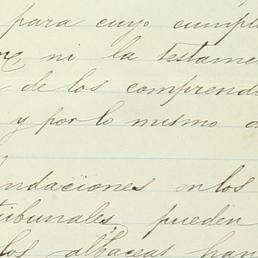 para cuyo cumpli
ni la testame
de los comprendi
y por lo mismo
ndaciones en los
tribunales, pueden
los albaceas han